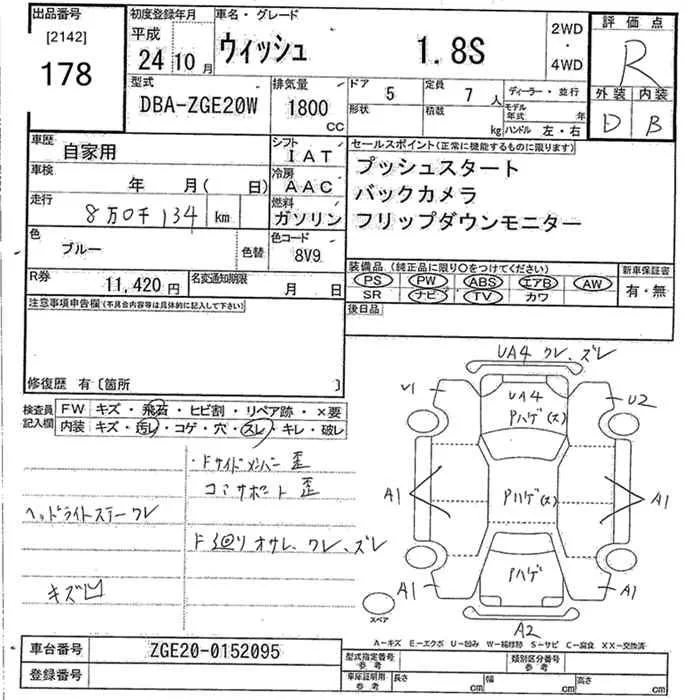 出品番号
[2142]
178
初度登録年月
平成
24年 10月
車名・グレード
ウィッシュ 1.8S
2WD
・
4WD
評価点
R
外装 内装
D B
型式
DBA-ZGE20W
排気量
1800
CC
ドア 5
定員 7 人
形状
積載 kg
ディーラー・並行
モデル年式 年
ハンドル 左・右
車歴
自家用
シフト
IAT
車検
年 月( 日)
冷房
AAC
走行
8万0千134 km
燃料
ガソリン
色
ブルー
色替
色コード
8V9
R券
11,420円
名変通知期限
月 日
セールスポイント(正常に機能するものに限ります)
プッシュスタート
バックカメラ
フリップダウンモニター
装備品(純正品に限り○をつけてください)
PS PW ABS エアB AW
SR ナビ TV カワ
新車保証書
有・無
後日品
注意事項申告欄(不具合内容等は具体的に記入して下さい)
修復歴 有〔箇所 〕
検査員
記入欄
FW キズ・飛石・ヒビ割・リペア跡・×要
内装 キズ・汚レ・コゲ・穴・スレ・キレ・破レ
・Fサイドメンバー 歪
コアサポート 歪
ヘッドライトステークレ
F廻りオサレ、クレ、ズレ
キズ凹
UA4 クレ、ズレ
U1
UA4
Pハゲ(大)
U2
A1
Pハゲ(大)
A1
Pハゲ
A1
A1
A2
スペア
A-キズ E-エクボ U-凹み W-補修跡 S-サビ C-腐食 XX-交換済
車台番号
ZGE20-0152095
登録番号
型式指定番号
参考
類別区分番号
参考
車庫証明用
参考
長さ cm
幅 cm
高さ cm